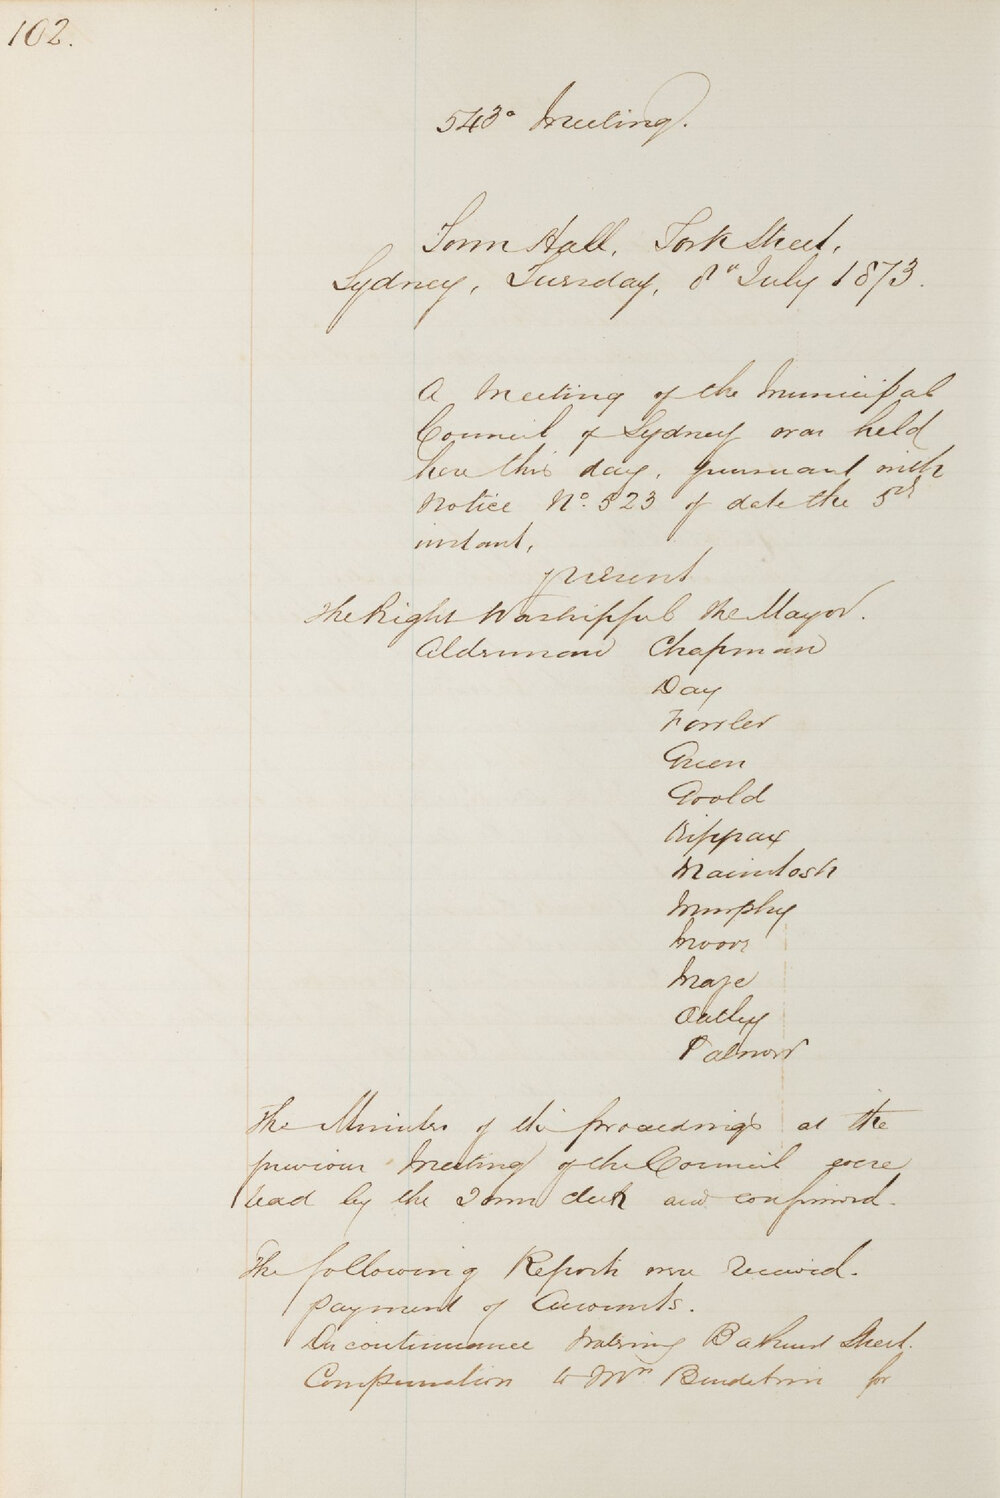 102.
543d Meeting.
Town Hall, York Street,
Sydney, Tuesday, 8th July 1873.
A Meeting of the Municipal
Council of Sydney was held
here this day, pursuant with
Notice No. 523 of date the 5th
instant,
present
The Right Worshipful the Mayor.
Aldermen Chapman
Day
Fowler
Green
Goold
Hippax
Macintosh
Murphy
Moore
Maze
Oatley
Palmer
The Minutes of the proceedings at the
previous Meeting of the Council were
read by the Town Clerk and confirmed.
The following Reports were received.
Payment of Accounts.
Discontinuance Watering Bathurst Street.
Compensation to Mrs
for